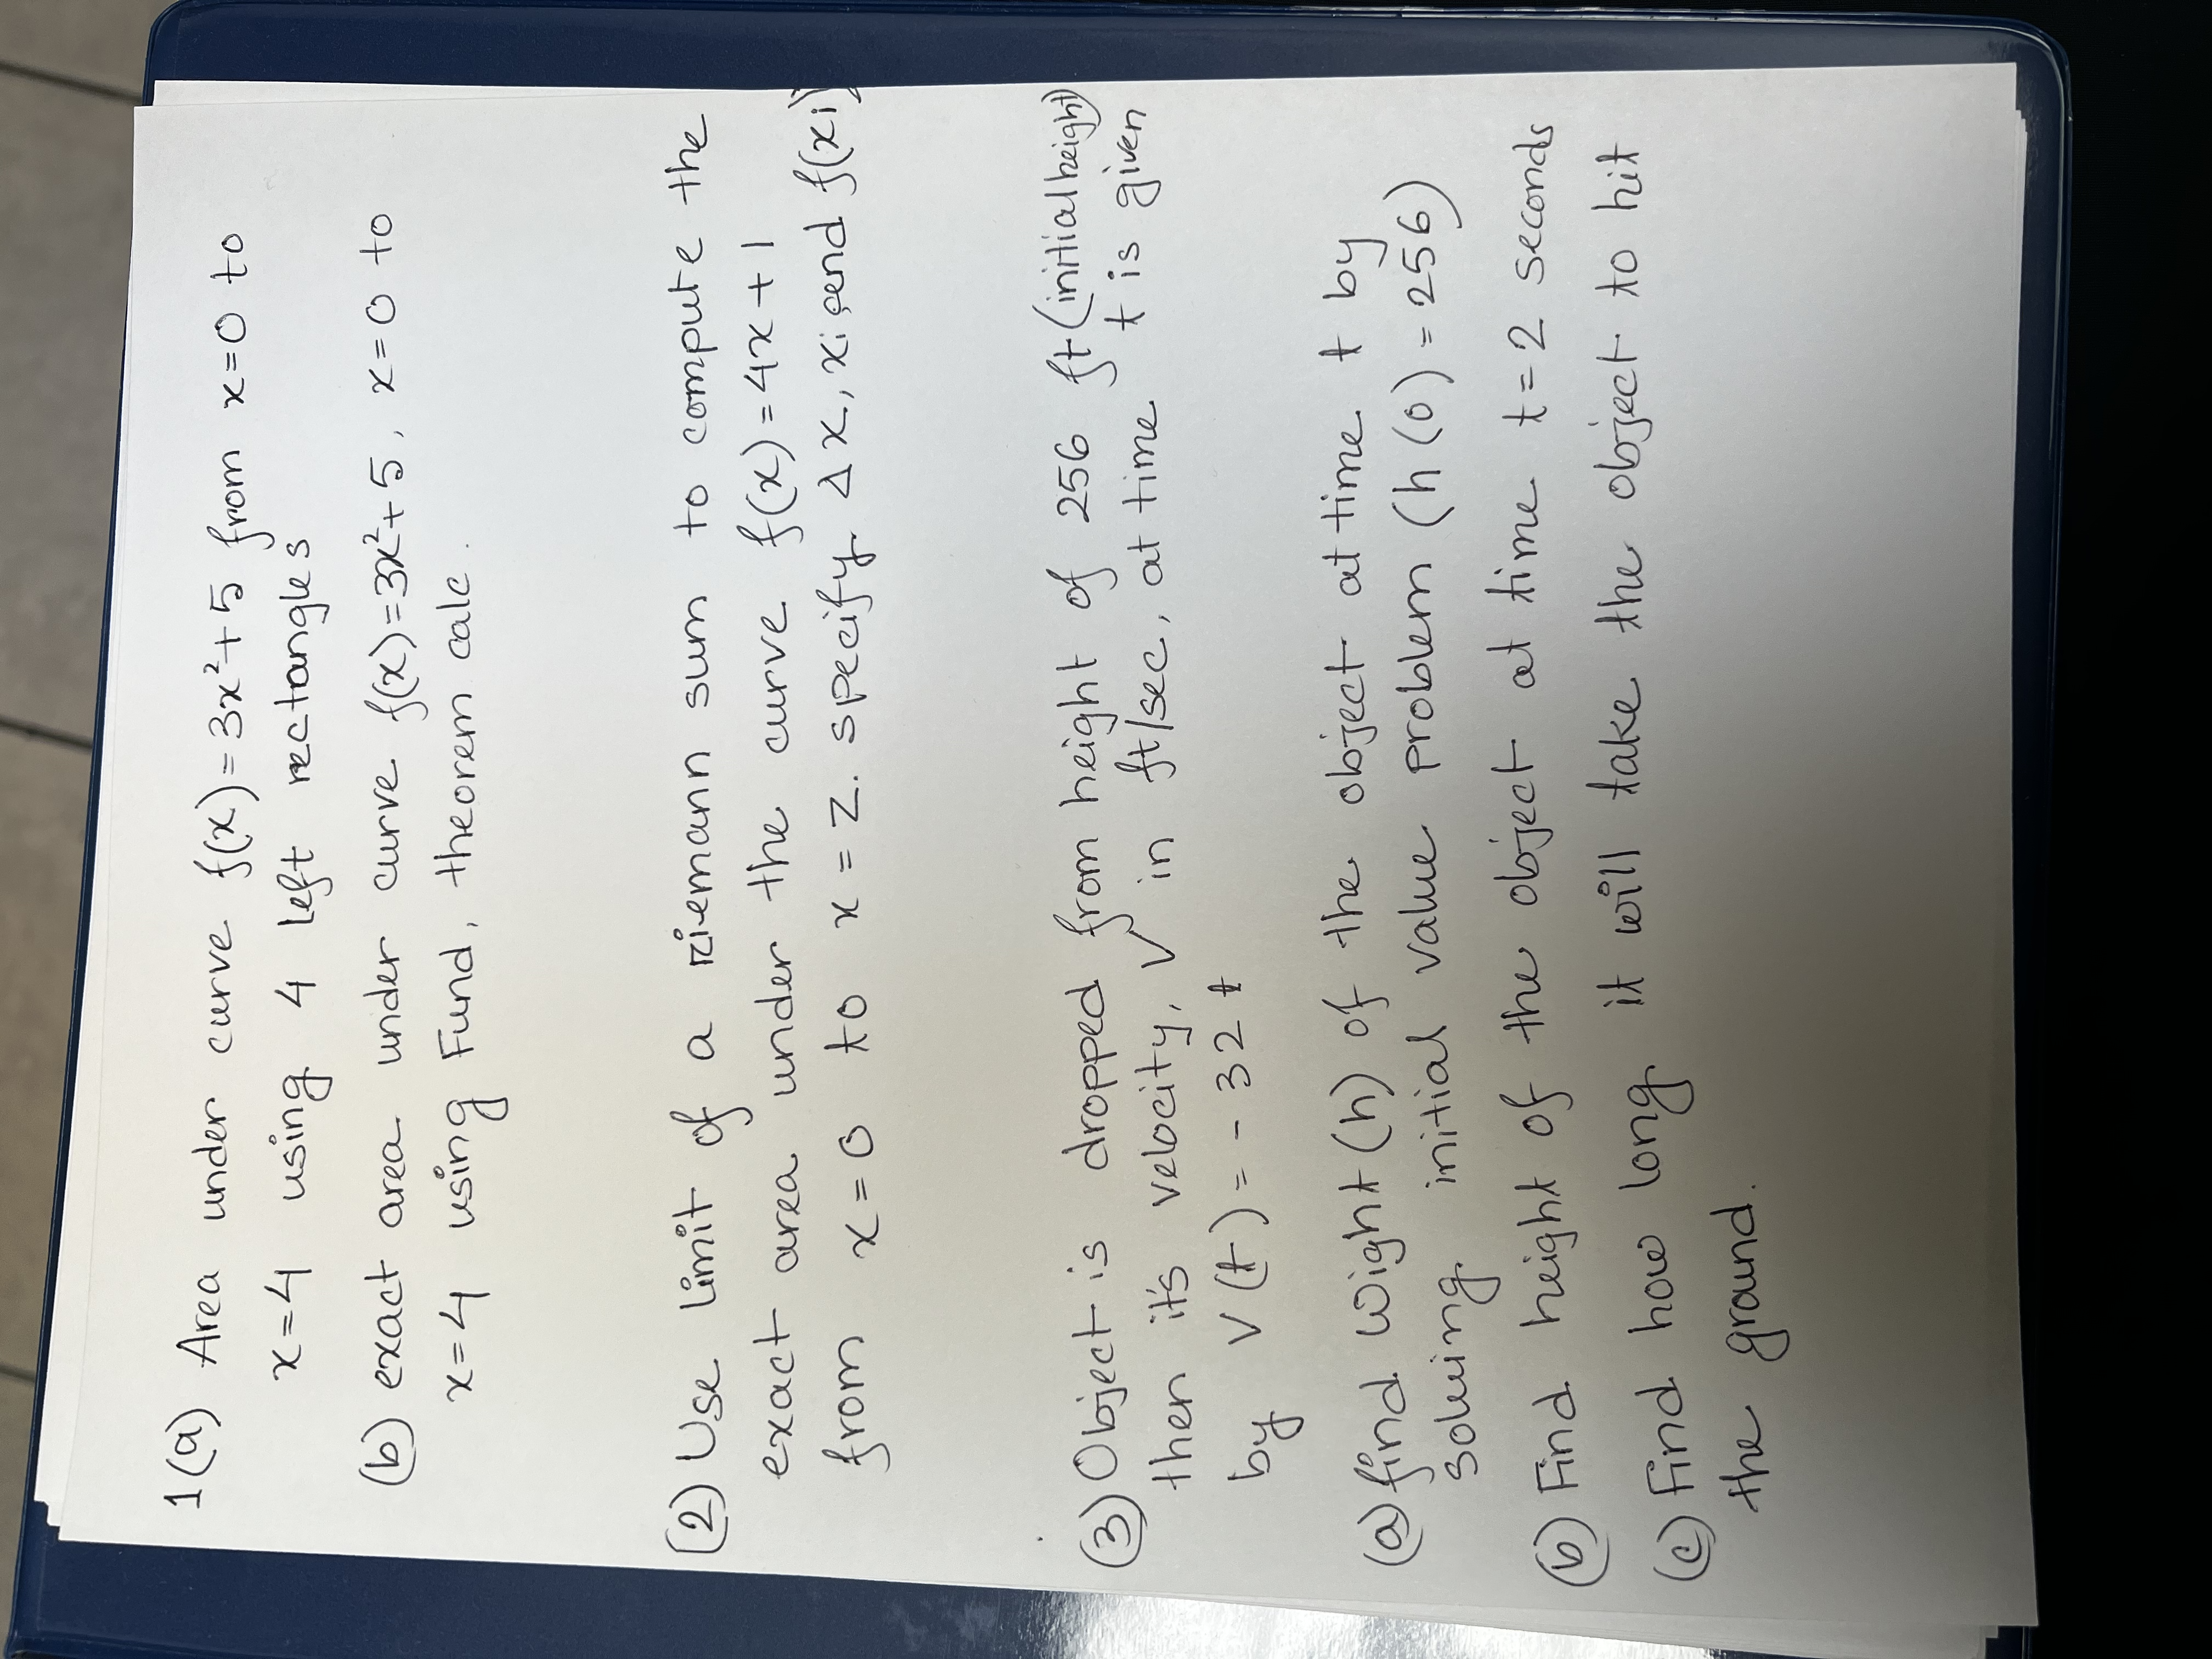 1(a) Area under curve f(x)=3x²+5 from x=0 to
x=4 using 4 left rectangles
(b) exact area under curve f(x)=3x²+5, x=0 to
x=4 using Fund, theorem calc.
(2) Use limit of a riemann sum to compute the
exact area under the curve f(x)=4x+1
from x=0 to x=2. specify Δx, xi, end f(xi)
(3) Object is dropped from height of 256 ft (initial height)
then it's velocity, v in ft/sec, at time t is given
by v(t)=-32t
(a) find wight (h) of the object at time t by
solwing initial value problem (h(0)=256)
(b) Find height of the object at time t=2 seconds
(c) Find how long it will take the object to hit
the ground.